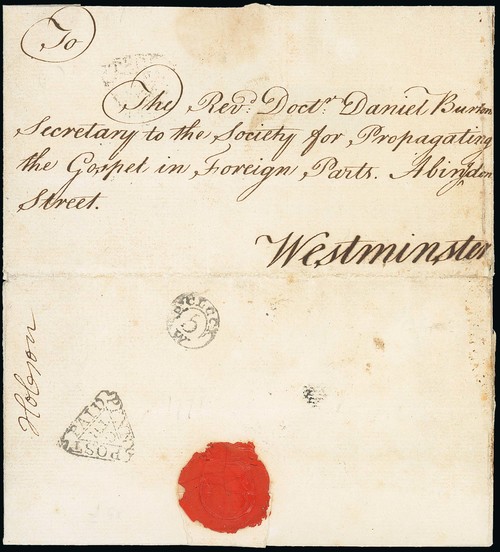 To
The Revd. Doctr. Daniel Burton
Secretary to the Society for Propagating
the Gospel in Foreign Parts. Abingdon
Street.
Westminster
O'CLOCK
5
Hobson
PENY
POST
PAID